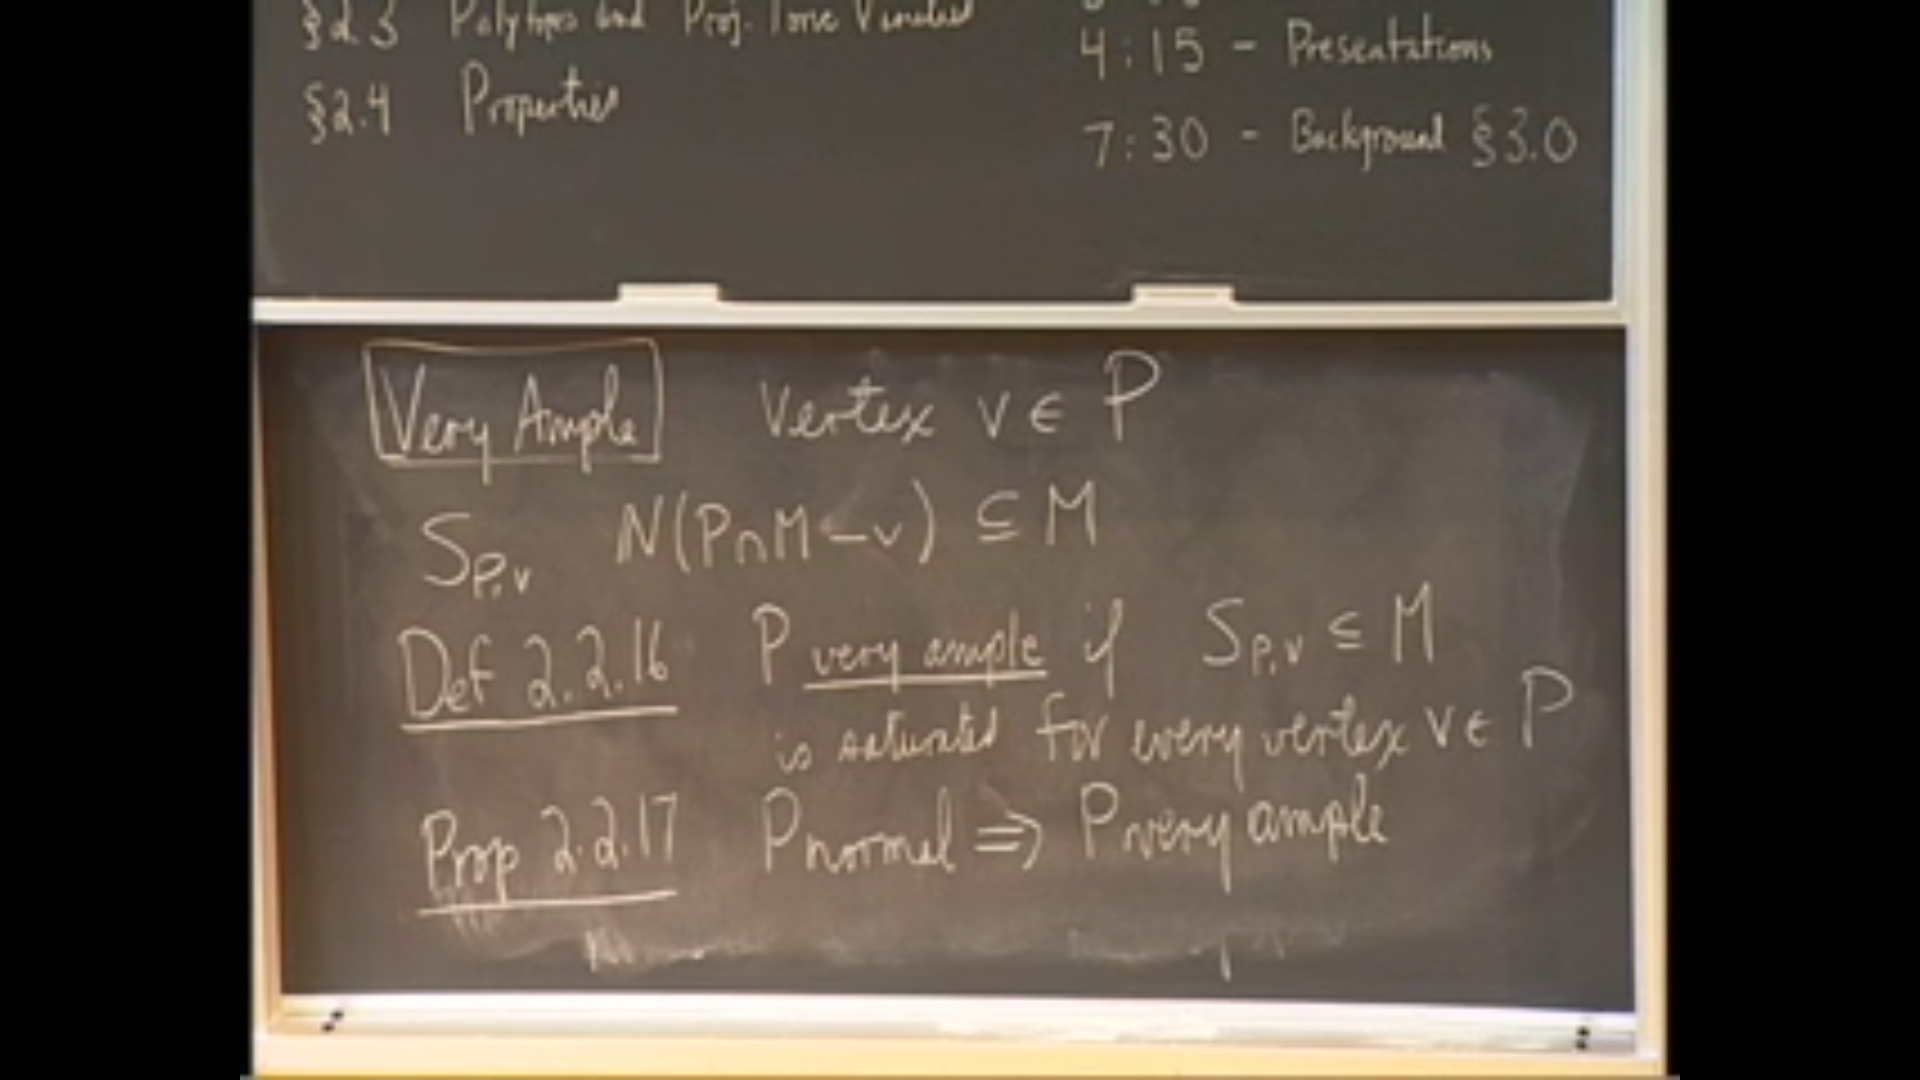 §2.3 Polytopes and Proj. Toric Varieties
§2.4 Properties
4:15 - Presentations
7:30 - Background §3.0
Very Ample Vertex v ∈ P
S_{P,v} N(P∩M-v) ⊆ M
Def 2.2.16 P very ample if S_{P,v} ⊆ M
is saturated for every vertex v ∈ P
Prop 2.2.17 P normal ⇒ P very ample